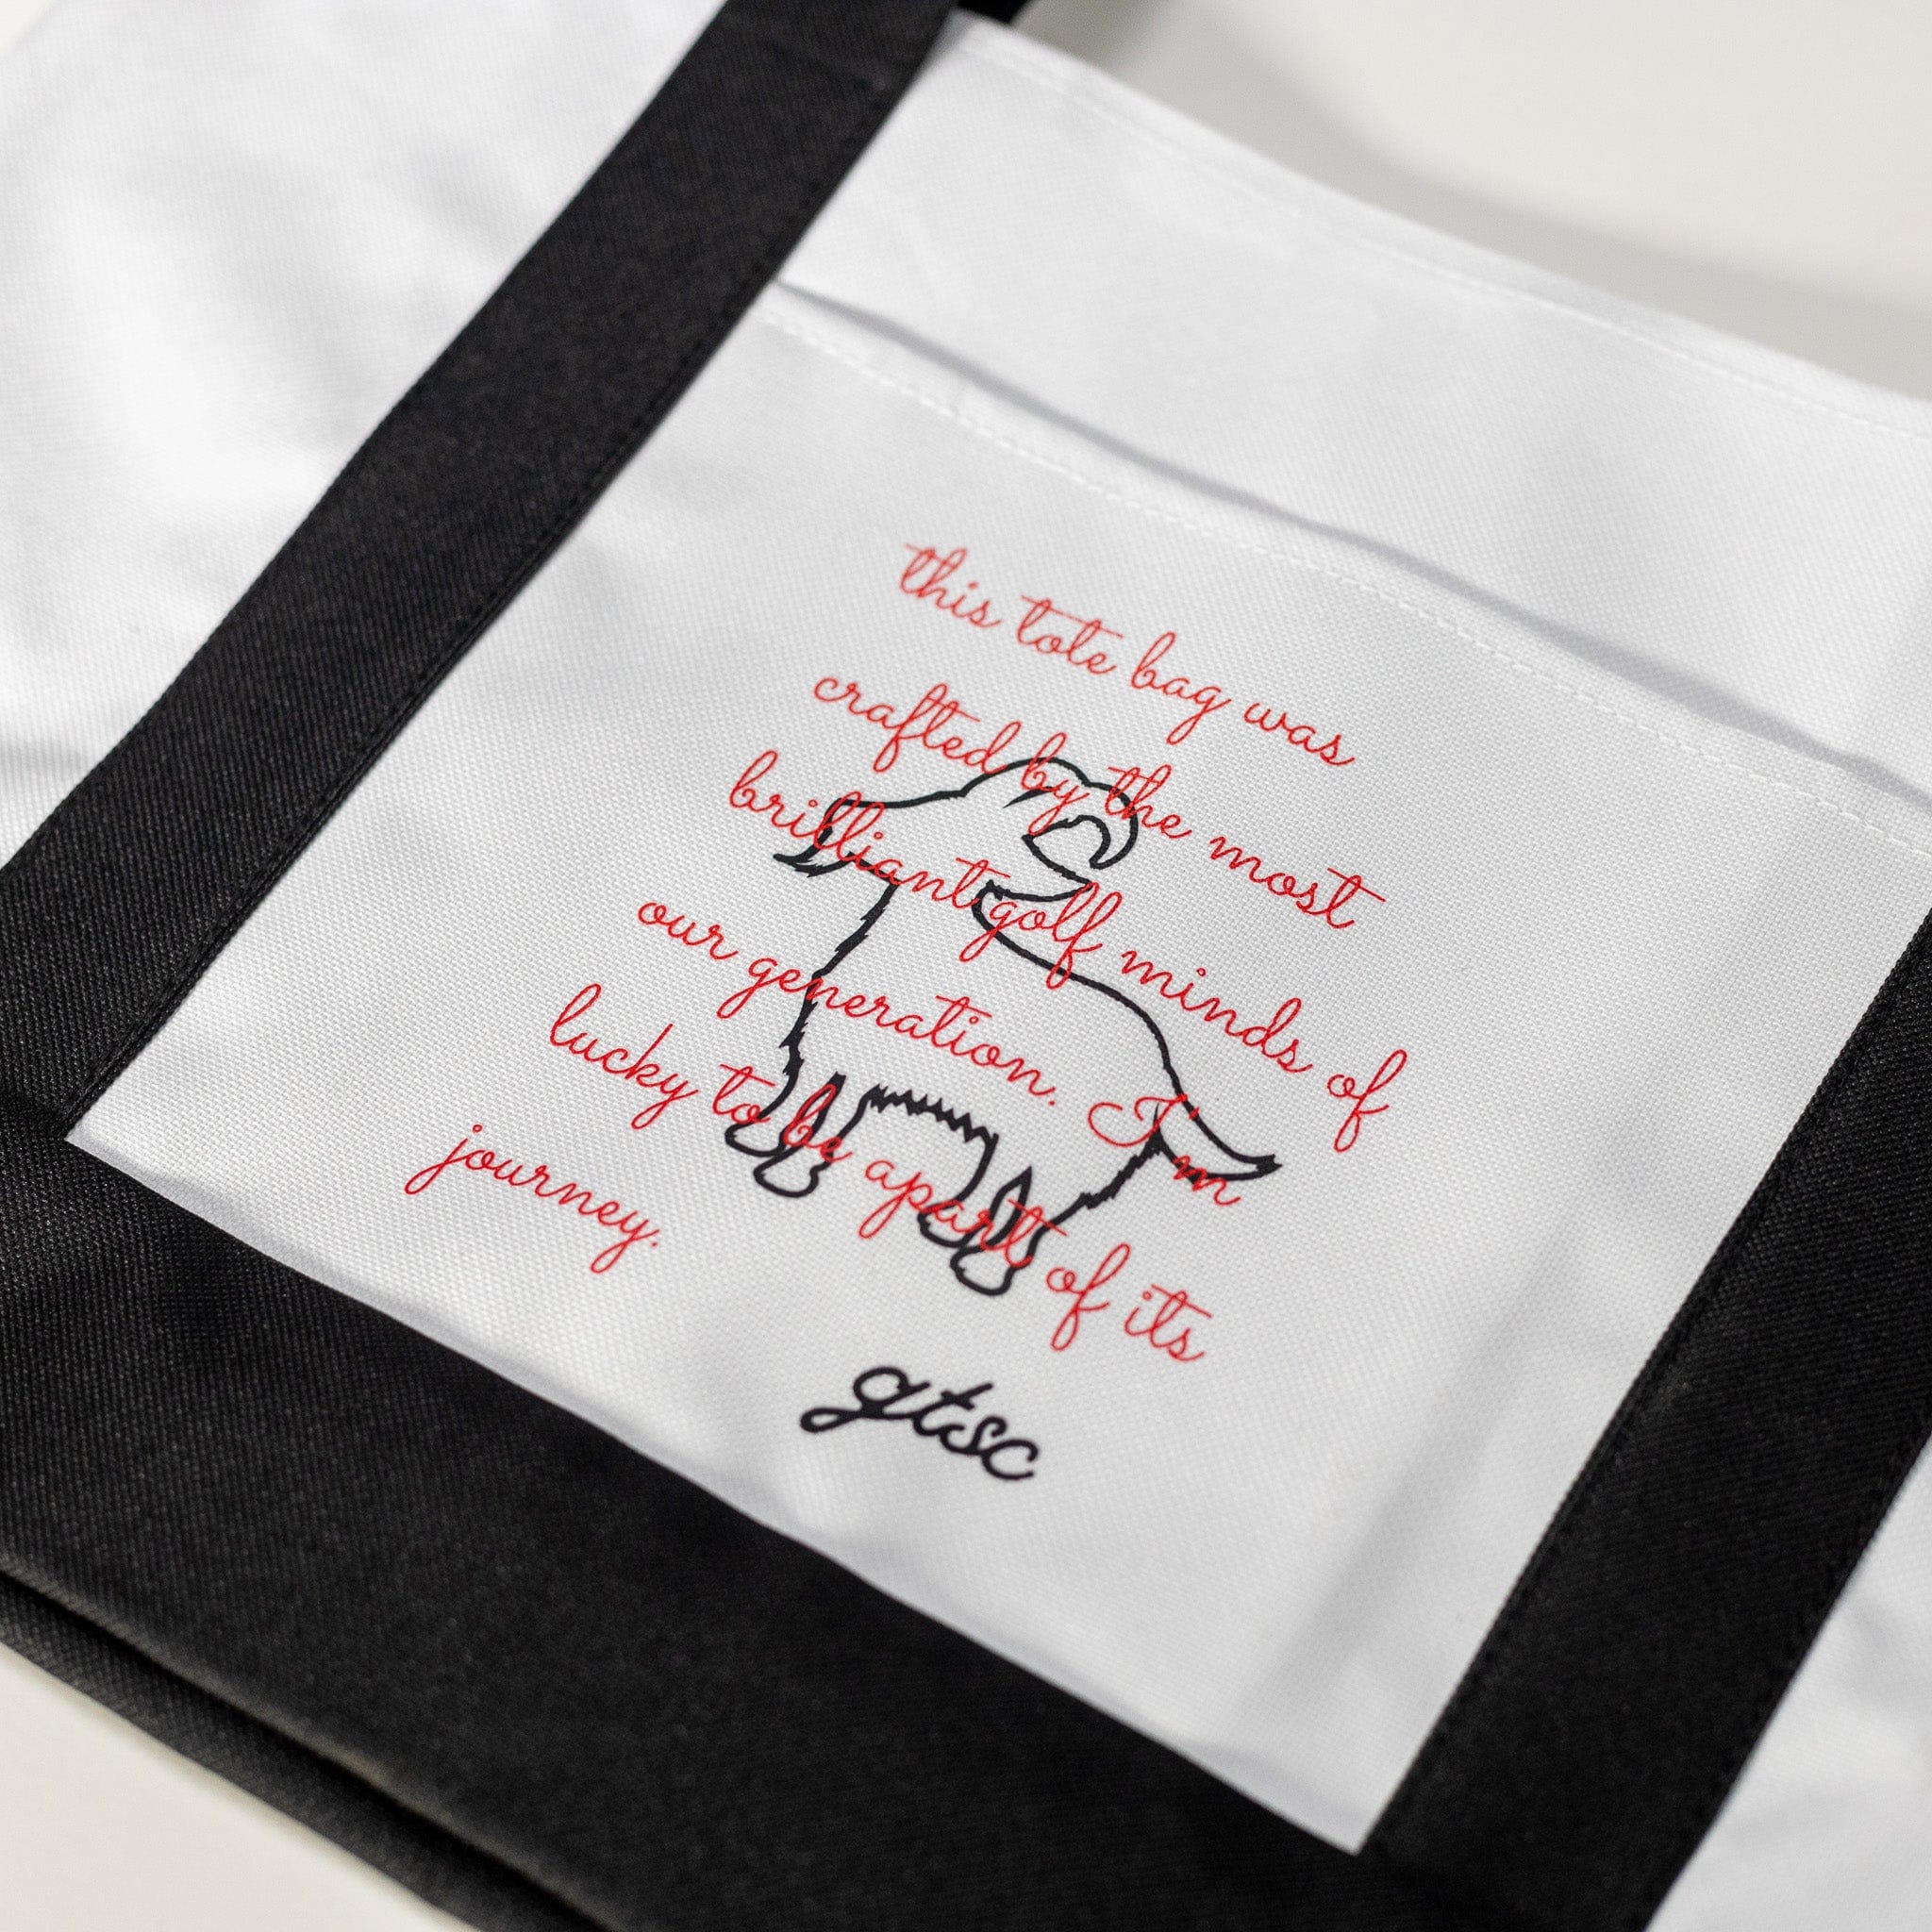 this tote bag was
crafted by the most
brilliant golf minds of
our generation. I'm
lucky to be apart of its
journey.
gtsc